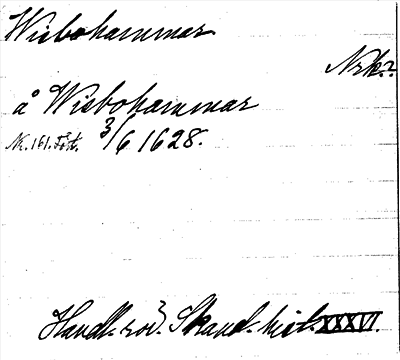 Wisbohammar
Nrk.?
å Wisbohammar
Nk. 161. Föt. 3/6 1628.
Handl. rör. Skand. hist. XXXVI.